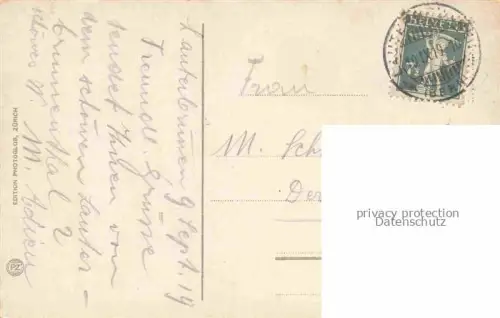 Lauterbrunnen, 9 Sept. 19
Freundl. Grüsse
sendet Ihnen von
dem schönen Lauter-
brunnental
M.
EDITION PHOTOGLOB, ZÜRICH
PZ
Frau
M. Sch
Der
HELVETIA
privacy protection
Datenschutz